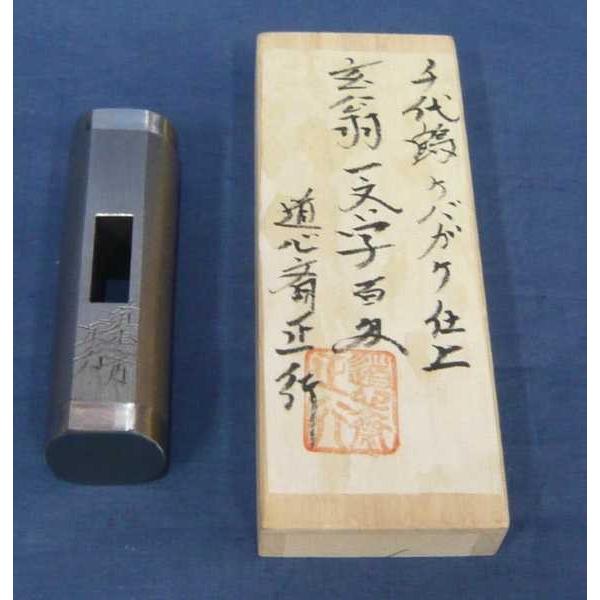 千代鶴ケバガケ仕上
玄翁一文字百匁
道心斎正行
道心斎
正行